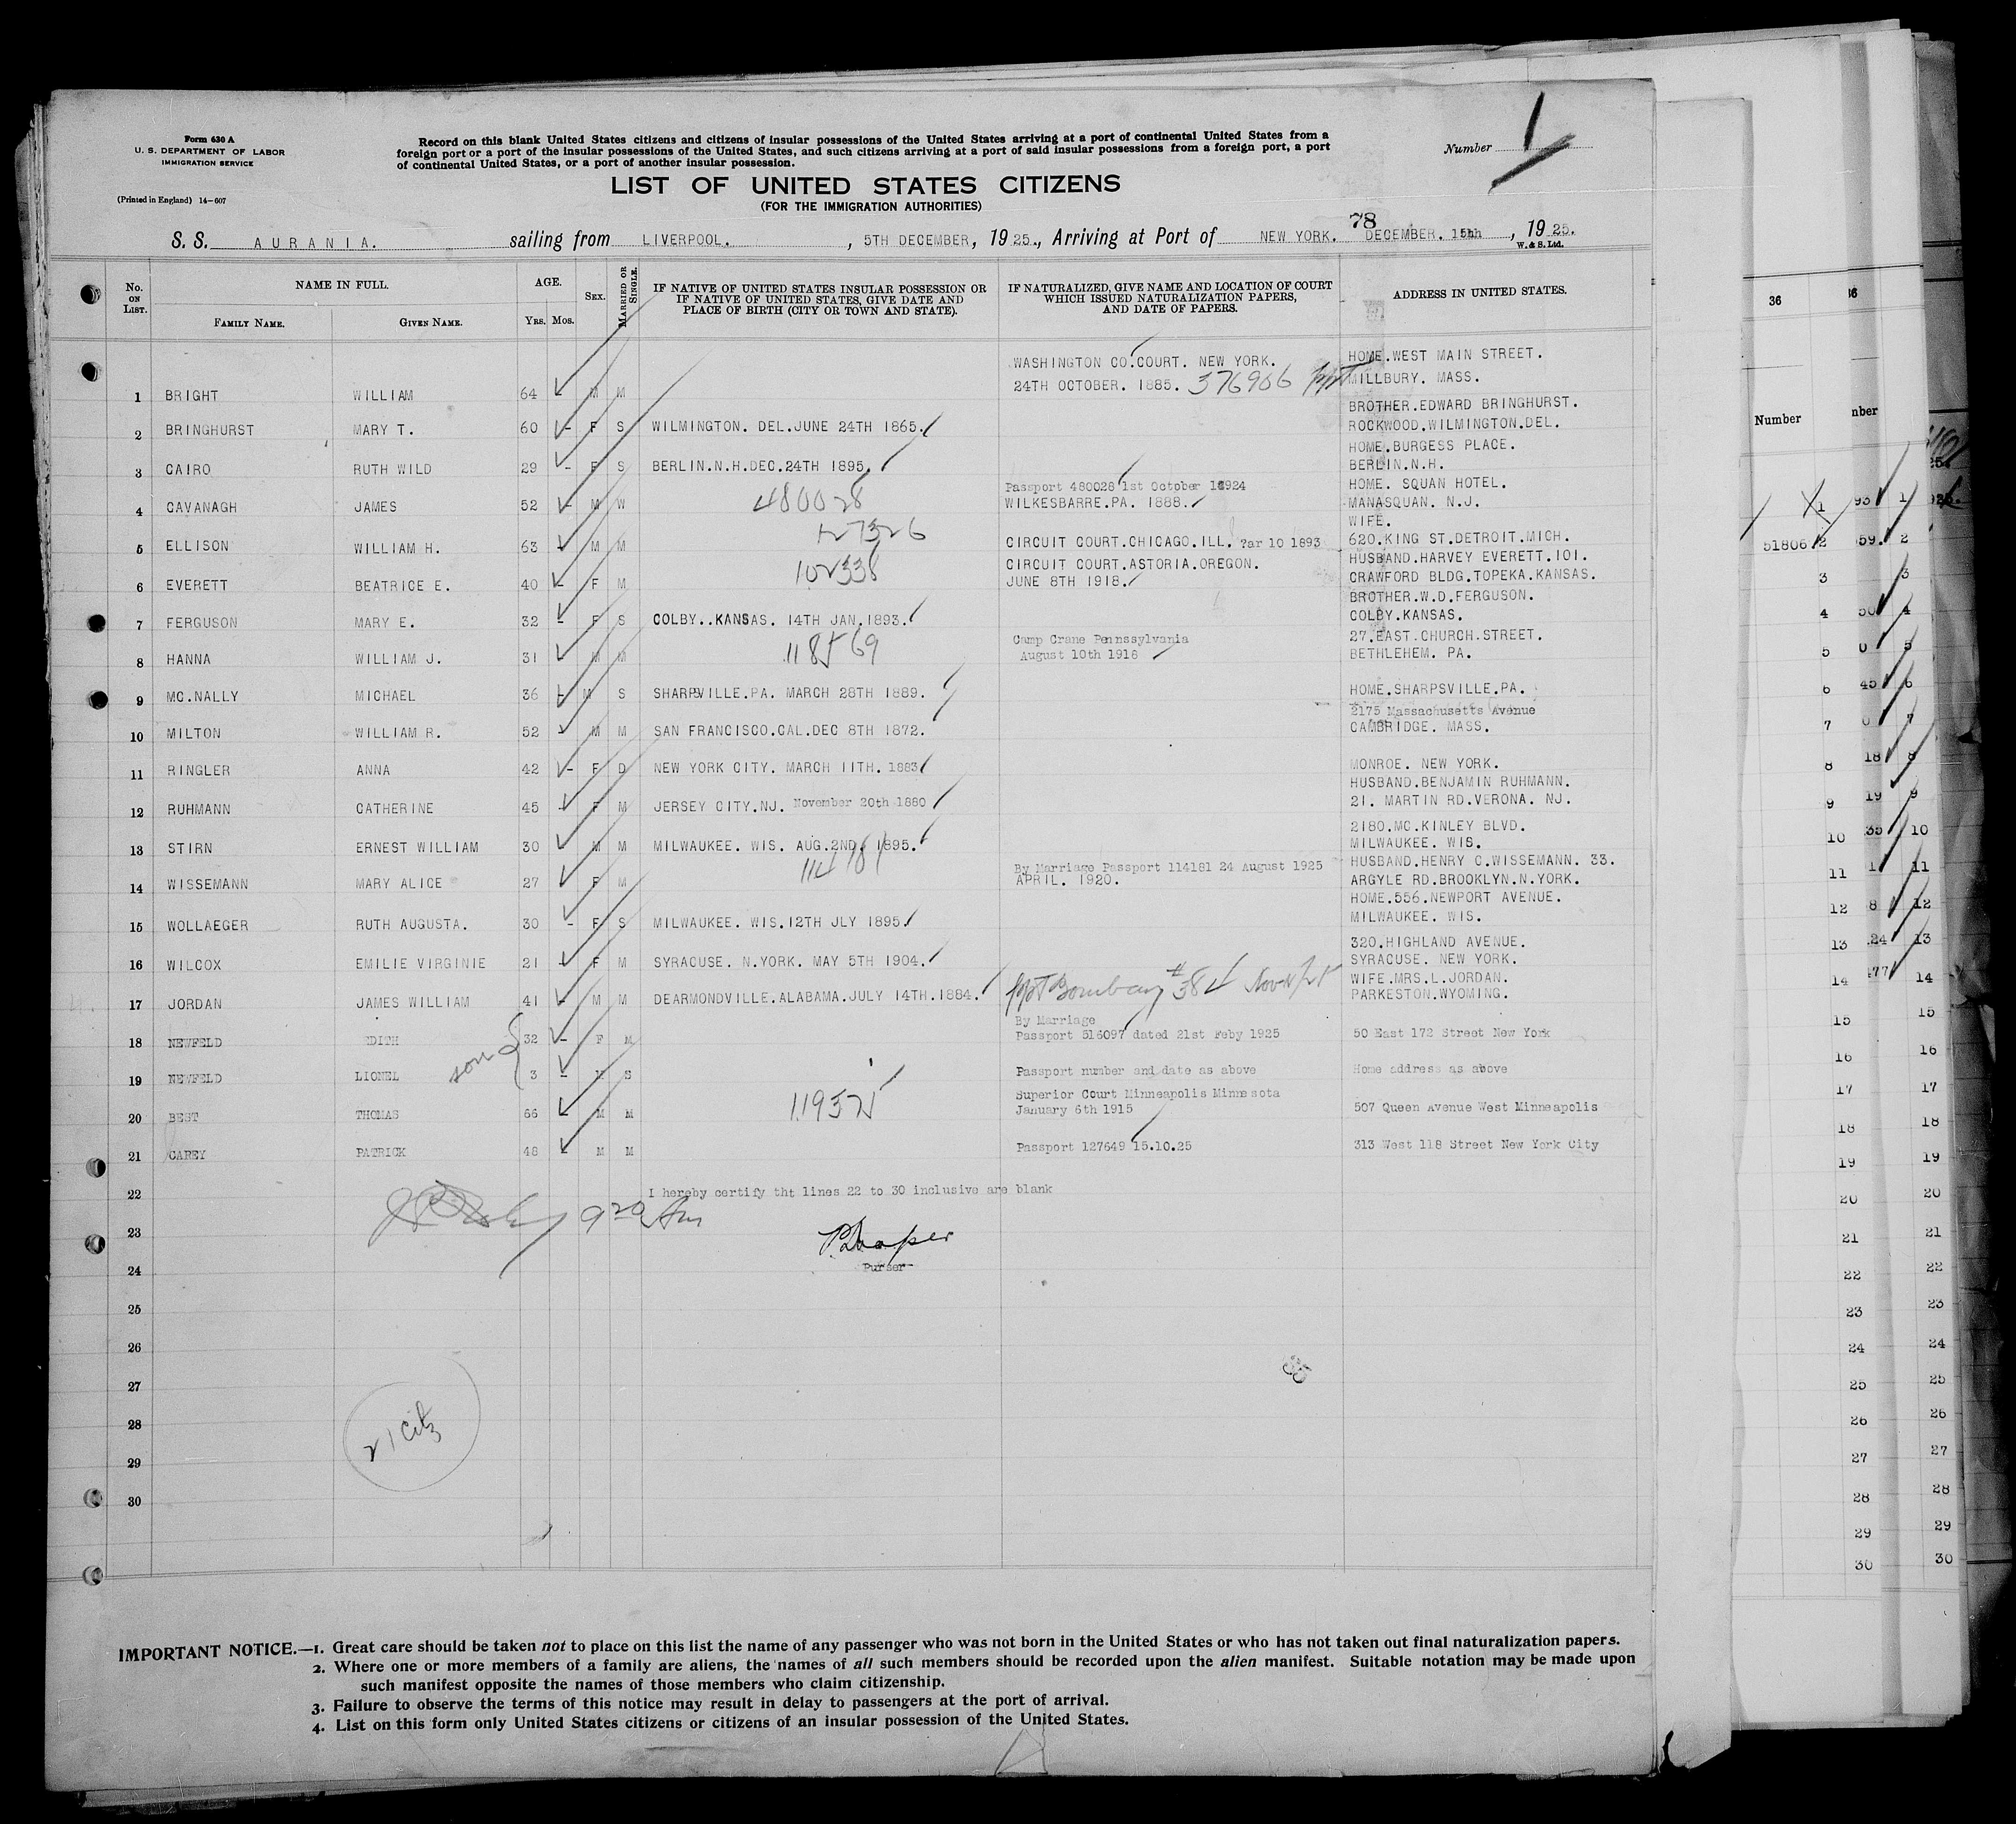 Form 630 A
U. S. DEPARTMENT OF LABOR
IMMIGRATION SERVICE
(Printed in England) 14-607
Record on this blank United States citizens and citizens of insular possessions of the United States arriving at a port of continental United States from a
foreign port or a port of the insular possessions of the United States, and such citizens arriving at a port of said insular possessions from a foreign port, a port
of continental United States, or a port of another insular possession.
Number 1
LIST OF UNITED STATES CITIZENS
(FOR THE IMMIGRATION AUTHORITIES)
78
S. S. AURANIA. sailing from LIVERPOOL. , 5TH DECEMBER, 1925., Arriving at Port of NEW YORK. DECEMBER. 15th , 1925.
W. & S. Ltd.
No. ON LIST. NAME IN FULL. AGE. SEX. MARRIED OR SINGLE. IF NATIVE OF UNITED STATES INSULAR POSSESSION OR IF NATIVE OF UNITED STATES, GIVE DATE AND PLACE OF BIRTH (CITY OR TOWN AND STATE). IF NATURALIZED, GIVE NAME AND LOCATION OF COURT WHICH ISSUED NATURALIZATION PAPERS, AND DATE OF PAPERS. ADDRESS IN UNITED STATES.
FAMILY NAME. GIVEN NAME. YRS. MOS.
WASHINGTON CO.COURT. NEW YORK. HOME.WEST MAIN STREET.
1 BRIGHT WILLIAM 64 M M 24TH OCTOBER. 1885. 376906 ppt MILLBURY. MASS.
BROTHER.EDWARD BRINGHURST.
2 BRINGHURST MARY T. 60 - F S WILMINGTON. DEL.JUNE 24TH 1865. ROCKWOOD.WILMINGTON.DEL.
HOME.BURGESS PLACE.
3 CAIRO RUTH WILD 29 - F S BERLIN.N.H.DEC.24TH 1895. BERLIN.N.H.
Passport 480028 1st October 1924 HOME. SQUAN HOTEL.
4 CAVANAGH JAMES 52 - M W 480028 WILKESBARRE.PA. 1888. MANASQUAN. N.J.
WIFE.
5 ELLISON WILLIAM H. 63 - M M 127326 CIRCUIT COURT.CHICAGO.ILL. ?ar 10 1893 620.KING ST.DETROIT.MICH.
CIRCUIT COURT.ASTORIA.OREGON. HUSBAND.HARVEY EVERETT.101.
6 EVERETT BEATRICE E. 40 - F M 102338 JUNE 8TH 1918. CRAWFORD BLDG.TOPEKA.KANSAS.
BROTHER.W.D.FERGUSON.
7 FERGUSON MARY E. 32 - F S COLBY..KANSAS. 14TH JAN.1893. COLBY.KANSAS.
Camp Crane Pennssylvania 27.EAST.CHURCH.STREET.
8 HANNA WILLIAM J. 31 - M M 118569 August 10th 1918 BETHLEHEM. PA.
9 MC.NALLY MICHAEL 36 - M S SHARPVILLE.PA. MARCH 28TH 1889. HOME.SHARPSVILLE.PA.
2175 Massachusetts Avenue
10 MILTON WILLIAM R. 52 - M M SAN FRANCISCO.CAL.DEC 8TH 1872. CAMBRIDGE. MASS.
11 RINGLER ANNA 42 - F D NEW YORK CITY. MARCH 11TH. 1883 MONROE. NEW YORK.
HUSBAND.BENJAMIN RUHMANN.
12 RUHMANN CATHERINE 45 - F M JERSEY CITY.NJ. November 20th 1880 21. MARTIN RD.VERONA. NJ.
2180.MC.KINLEY BLVD.
13 STIRN ERNEST WILLIAM 30 M M MILWAUKEE. WIS. AUG.2ND. 1895. MILWAUKEE. WIS.
114181 By Marriage Passport 114181 24 August 1925 HUSBAND.HENRY C.WISSEMANN. 33.
14 WISSEMANN MARY ALICE 27 F M APRIL. 1920. ARGYLE RD.BROOKLYN.N.YORK.
HOME.556.NEWPORT AVENUE.
15 WOLLAEGER RUTH AUGUSTA. 30 - F S MILWAUKEE. WIS.12TH JLY 1895. MILWAUKEE. WIS.
320.HIGHLAND AVENUE.
16 WILCOX EMILIE VIRGINIE 21 - F M SYRACUSE. N.YORK. MAY 5TH 1904. SYRACUSE. NEW YORK.
WIFE.MRS.L.JORDAN.
17 JORDAN JAMES WILLIAM 41 - M M DEARMONDVILLE.ALABAMA.JULY 14TH.1884. ppt Bombay #384 PARKESTON.WYOMING.
By Marriage
18 NEWFELD EDITH 32 - F M Passport 516097 dated 21st Feby 1925 50 East 172 Street New York
son
19 NEWFELD LIONEL 3 - M S Passport number and date as above Home address as above
Superior Court Minneapolis Minnesota
20 BEST THOMAS 66 - M M 119525 January 6th 1915 507 Queen Avenue West Minneapolis
21 CAREY PATRICK 48 - M M Passport 127649 15.10.25 313 West 118 Street New York City
22 I hereby certify tht lines 22 to 30 inclusive are blank
9 20 Am
23
24 Purser
25
26
27
28 21 Citz
29
30
IMPORTANT NOTICE.—1. Great care should be taken not to place on this list the name of any passenger who was not born in the United States or who has not taken out final naturalization papers.
2. Where one or more members of a family are aliens, the names of all such members should be recorded upon the alien manifest. Suitable notation may be made upon
such manifest opposite the names of those members who claim citizenship.
3. Failure to observe the terms of this notice may result in delay to passengers at the port of arrival.
4. List on this form only United States citizens or citizens of an insular possession of the United States.
36
Number
51806
1
2
3
4
5
6
7
8
9
10
11
12
13
14
15
16
17
18
19
20
21
22
23
24
25
26
27
28
29
30
1
2
3
4
5
6
7
8
9
10
11
12
13
14
15
16
17
18
19
20
21
22
23
24
25
26
27
28
29
30